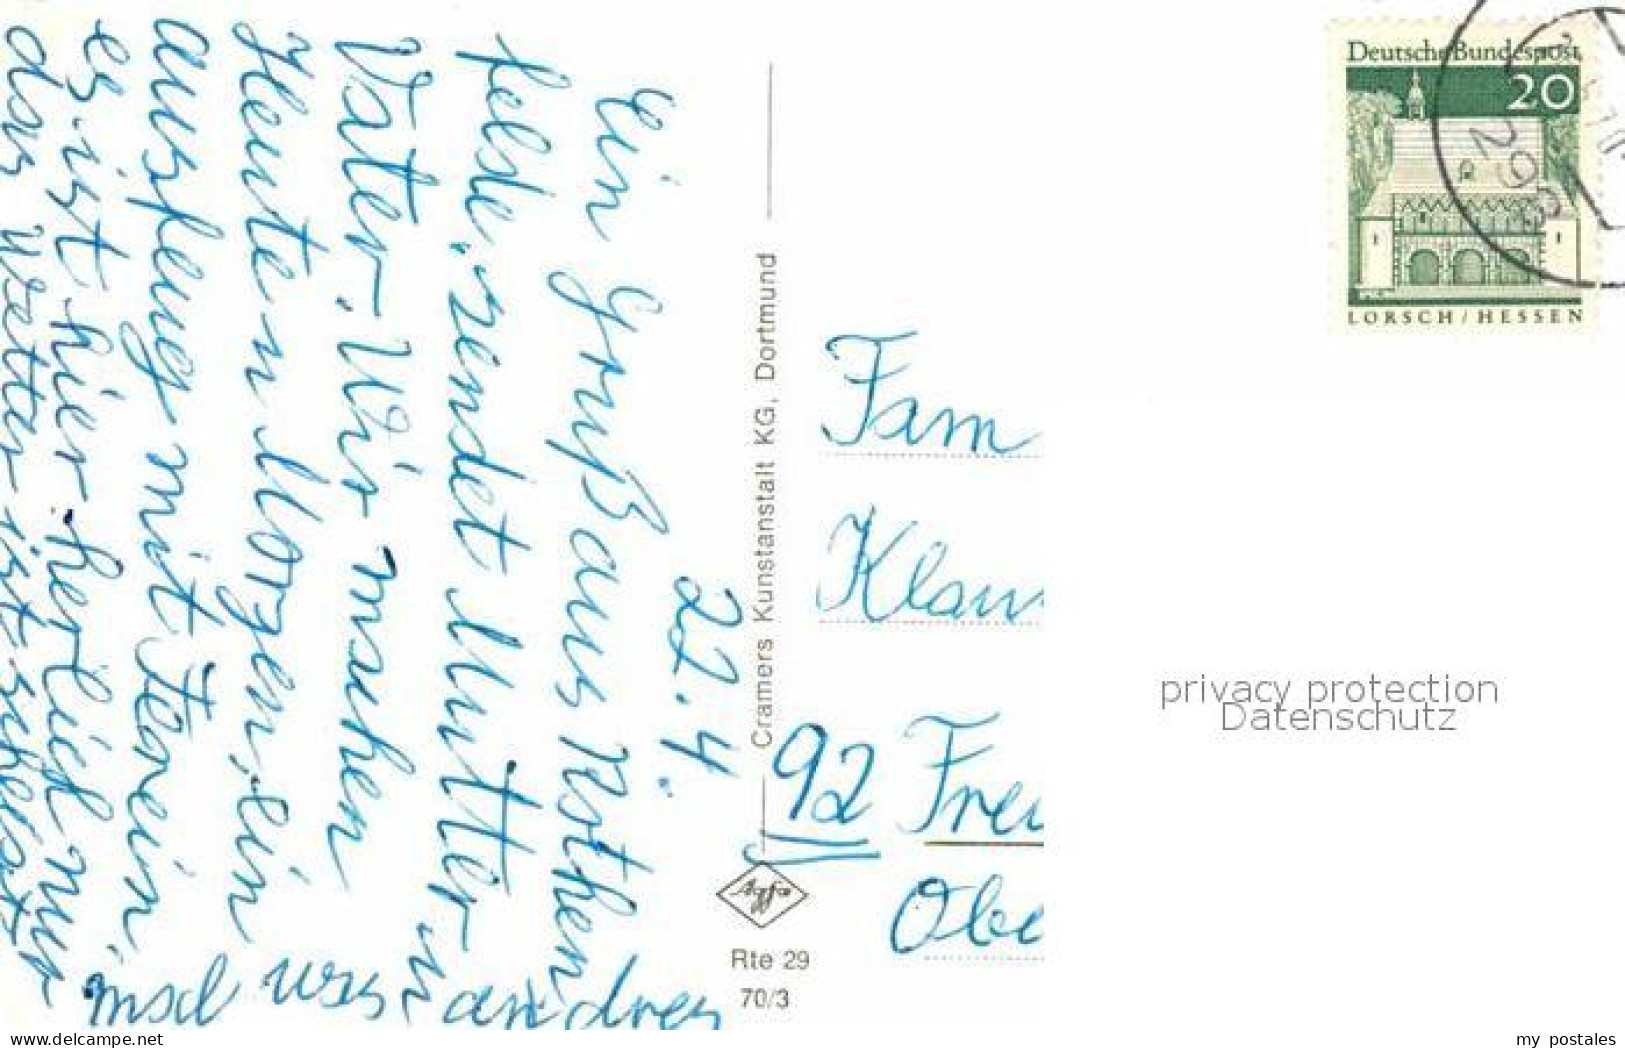 22.4.
Ein Gruß aus Rothen
felde. sendet Mutter u
Vater. Wir machen
Heute n Morgen, ein
ausfleug mit Ferein,
es ist hier herlich nur
das wetar ist
Cramers Kunstanstalt KG, Dortmund
Agfa
Rte 29
70/3
Deutsche Bundespost
20
LORSCH/HESSEN
Fam
Klaus
92 Freu
Obe
privacy protection
Datenschutz
www.ansichtskartenversand.com
my postales